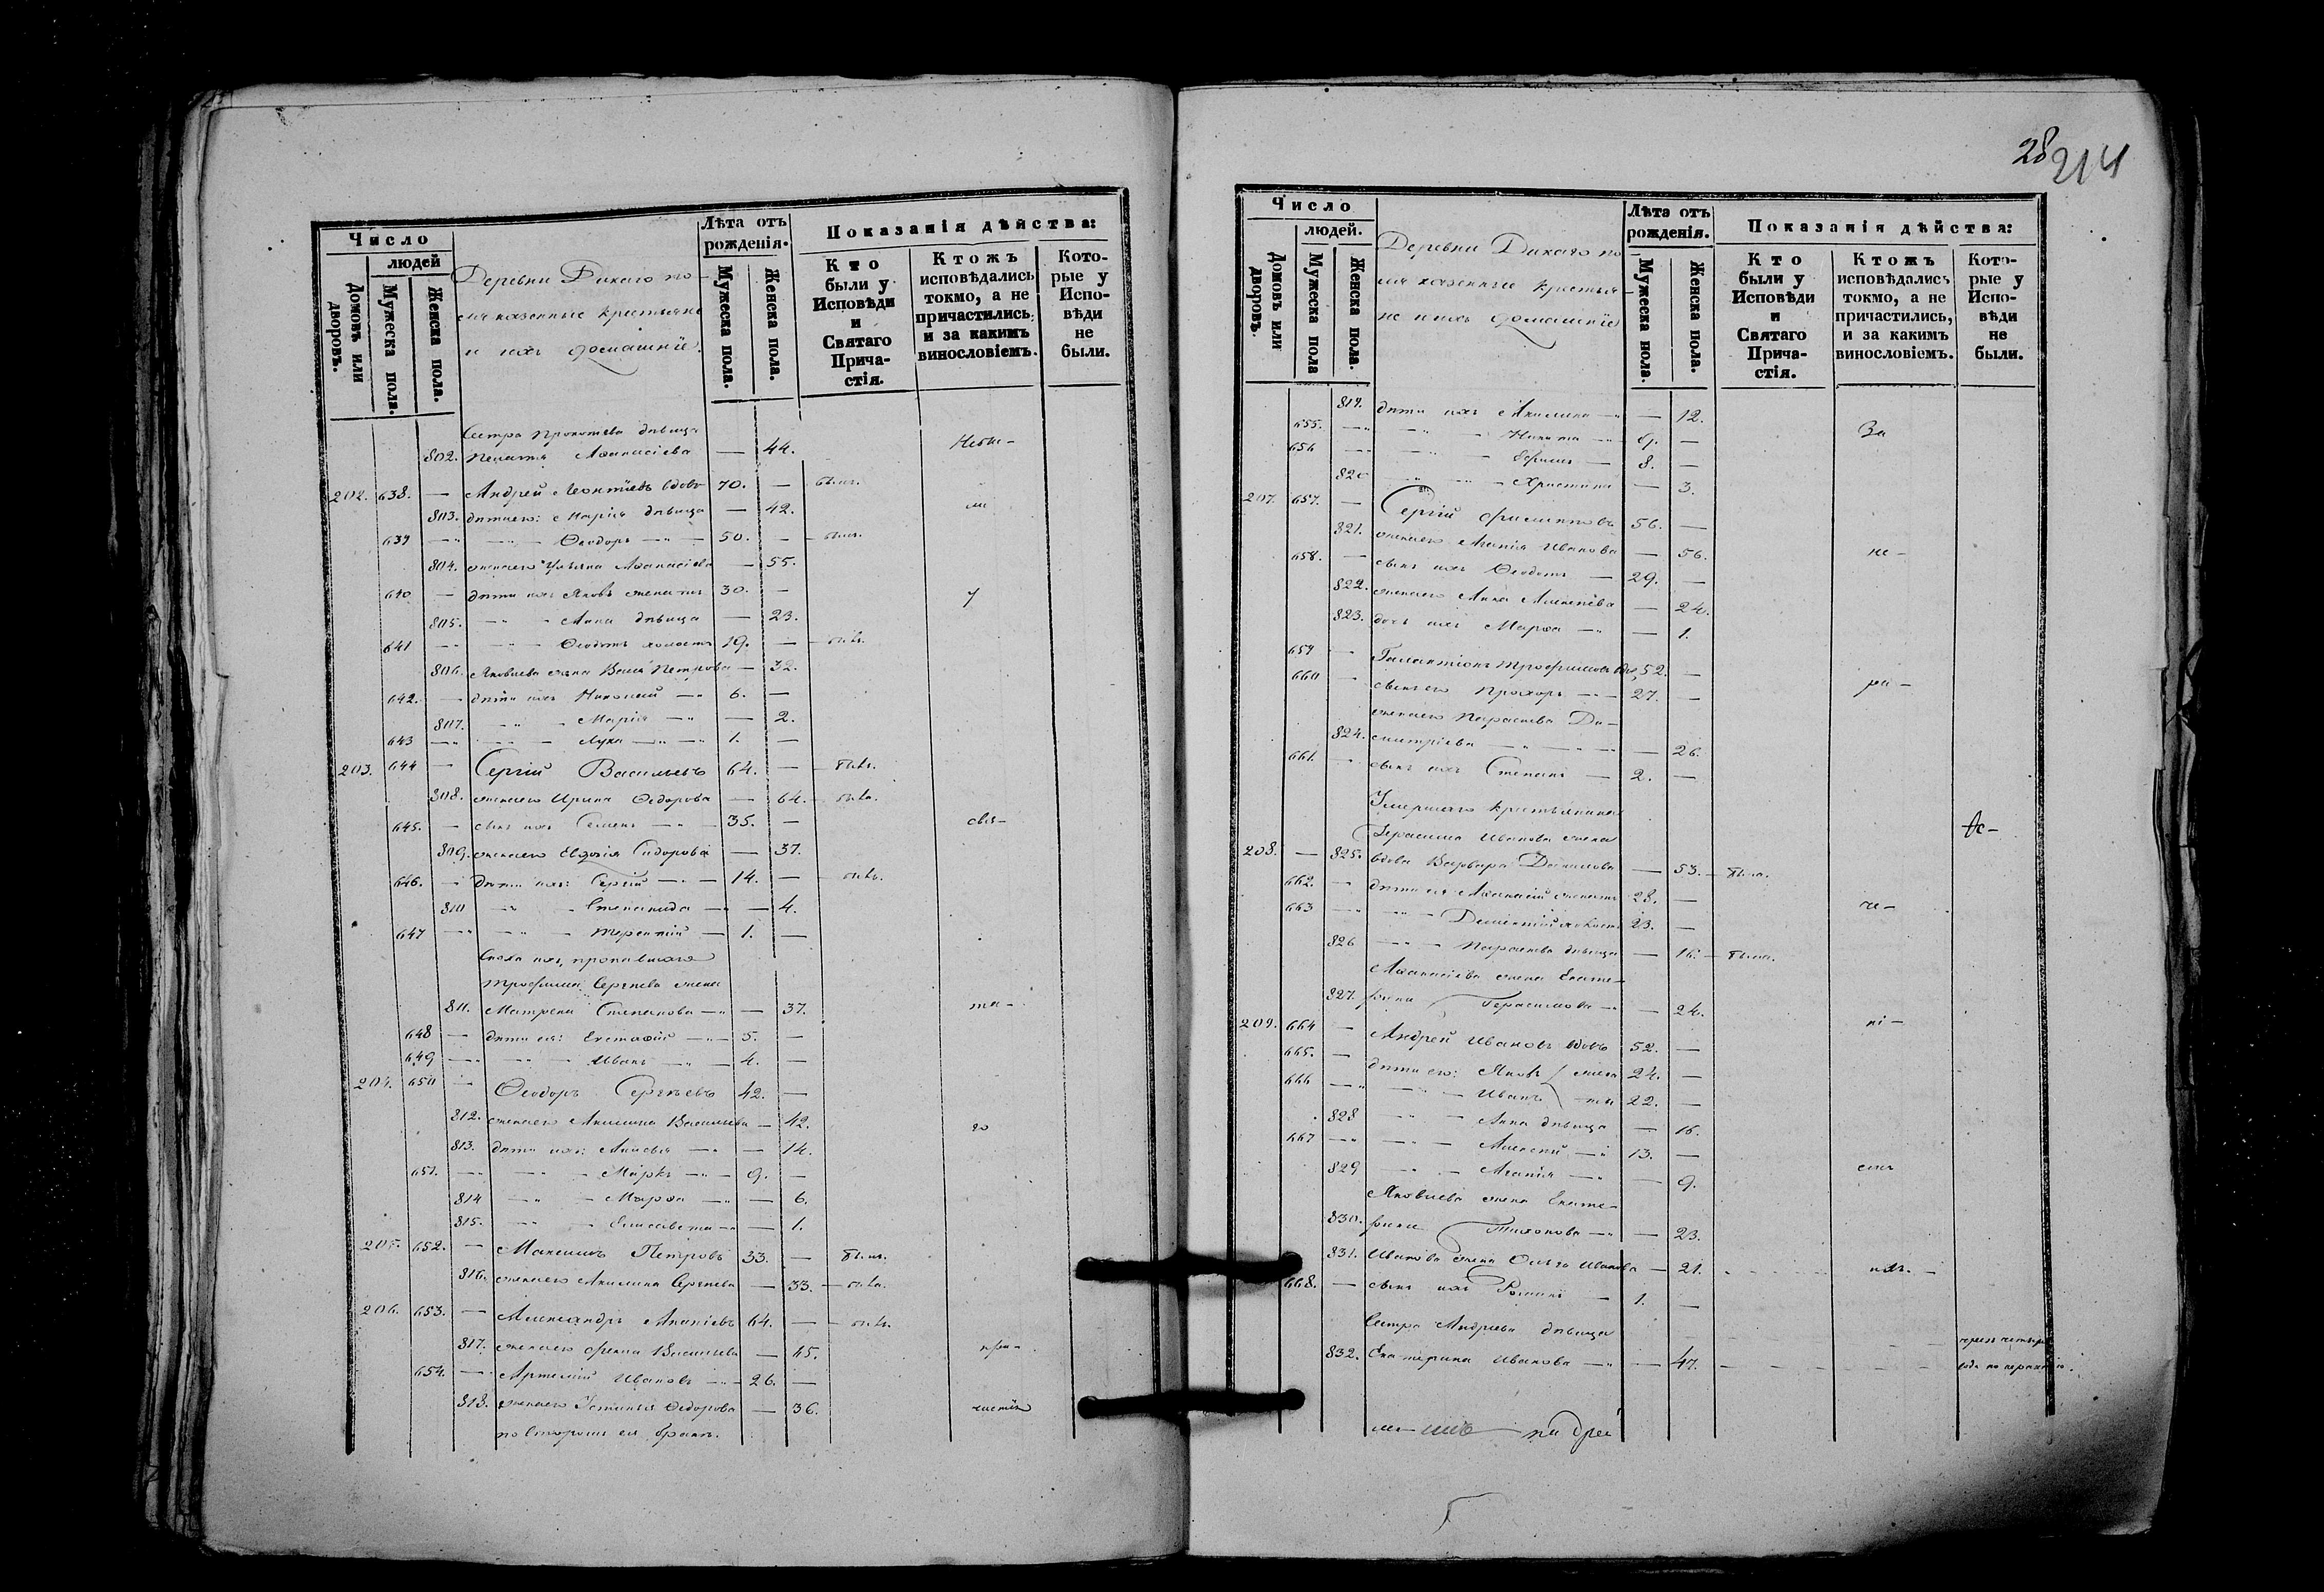 Число
людей
Домовъ или дворовъ.
Мужеска пола.
Женска пола.
Деревни Дикаго по-
ля казенные крестьяне
и ихъ домашніе.
Лѣта отъ рожденія.
Мужеска пола.
Женска пола.
Показанія дѣйства:
Кто были у Исповѣди и Святаго Причастія.
Ктожъ исповѣдались токмо, а не причастились, и за какимъ винословіемъ.
Которые у Исповѣди не были.
Сестра Прокопьева дѣвица
802. Аѳанасіева — 44.
202. 638. — Андрей Леонтіевъ вдовъ 70. — былъ.
803. дѣти его: Марія дѣвица — 42.
639 — Ѳеодоръ — 50. — былъ.
804. жена его Ульяна Аѳанасіева — 55.
640 — дѣти ихъ Яковъ женатъ 30. — у
805. — Анна дѣвица — 23.
641 — Ѳеодотъ холостъ 19. —
806. Яковлева жена Петрова — 32.
642. — дѣти ихъ Николай — 6. —
807. — Марія — 2.
643 — Лука — 1. —
203. 644 — Сергій Васильевъ 64. —
808. жена его Ирина Ѳедорова — 64.
645. — сынъ ихъ Семенъ — 35. —
809. жена его Евдокія Сидорова — 37.
646. — дѣти ихъ: Сергій — 14. —
810 — Степанида — 4.
647 — Терентій — 1. —
Сноха ихъ, пропавшаго
Трофима Сергѣева жена
811. Матрена Степанова — 37. та-
648 — дѣти ея: Евстафій — 5. —
649 — Иванъ — 4. —
204. 650 — Ѳеодоръ Сергѣевъ 42. —
812. жена его Акилина Васильева — 42. го
813. дѣти ихъ: — 14.
651. — Маркъ — 9. —
814 — Марѳа — 6.
815. — Елисавета — 1.
205. 652. — Максимъ Петровъ 33. — былъ.
816. жена его Акилина Сергѣева — 33.
206. 653. — Александръ Ананіевъ 64. —
817. жена его Васильева — 65. при-
654. — Артемій Ивановъ — 26. —
818. жена его Устинья Ѳедорова — 36. частія
по второмъ ея бракѣ.
28 214
Число
людей.
Домовъ или дворовъ.
Мужеска пола
Женска пола.
Деревни Дикаго по
ля казенные крестья-
не и ихъ домашніе
Лѣта отъ рожденія.
Мужеска пола.
Женска пола.
Показанія дѣйства:
Кто были у Исповѣди и Святаго Причастія.
Ктожъ исповѣдались токмо, а не причастились, и за какимъ винословіемъ.
Которые у Исповѣди не были.
819. дѣти ихъ Акилина — 12.
655. — Никита — 9. — За
656 — Ефимъ — 8. —
820 — Христина — 3.
207. 657. — Сергій Филипповъ 56. —
821. жена его Агапія Иванова — 56. не-
658. — сынъ ихъ Ѳеодотъ — 29. —
822. жена его Анна Алексѣева — 24.
823. дочь ихъ Марѳа — 1.
659 — Галактіонъ Трофимовъ вдов, 52. —
660 — сынъ его Прохоръ — 27. —
жена его Параскева Ди-
824. митріева — 26.
661. — сынъ ихъ Степанъ — 2. —
Умершаго крестьянина
Герасима Иванова жена
208. — 825. вдова Варвара Данилова — 53. — была.
662. — дѣти ея Аѳанасій женатъ 28. — че-
663 — холостъ 23. —
826 — Параскева дѣвица — 16. — была.
Аѳанасіева жена Екате-
827. рина Герасимова — 24.
209. 664 — Андрей Ивановъ вдовъ 52. — ні-
665. — дѣти его: Яковъ жена 24. —
666 — Иванъ ты 22. —
828 — Анна дѣвица — 16.
667 — Алексій — 13. —
829 — Агапія — 9.
Яковлева жена Екате-
830. рина Тихонова — 23.
831. Иванова жена Ольга Иванова — 21.
668. — сынъ ихъ Романъ — 1. —
Сестра Андреева дѣвица
832. Екатерина Иванова — 47.